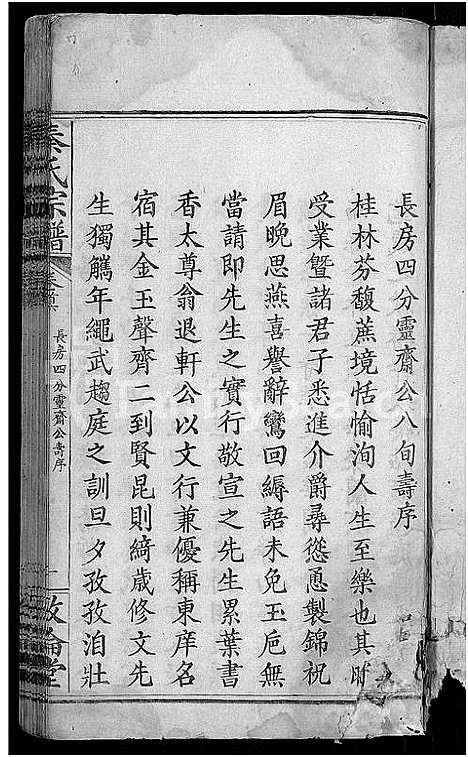 長房四分靈齋公八旬壽序
桂林芬馥蔗境恬愉洵人生至樂也其時
受業曁諸君子悉進介爵尋慫恿製錦祝
眉晩思燕喜譽辭鸞回縟語未免玉巵無
當請卽先生之實行敬宣之先生累葉書
香太尊翁退軒公以文行兼優稱東庠名
宿其金玉聲齊二到賢昆則綺歲修文先
生獨觿年繩武趨庭之訓旦夕孜孜洎壯
秦氏宗譜
卷首
長房四分靈齋公壽序
一
敦倫堂